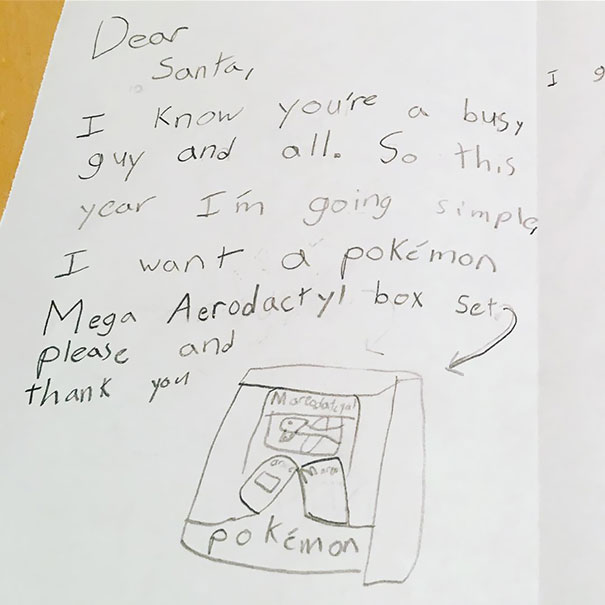 Dear
Santa,
I know you're a busy
guy and all. So this
year I'm going simple,
I want a pokémon
Mega Aerodactyl box set
please and
thank you
pokémon
I